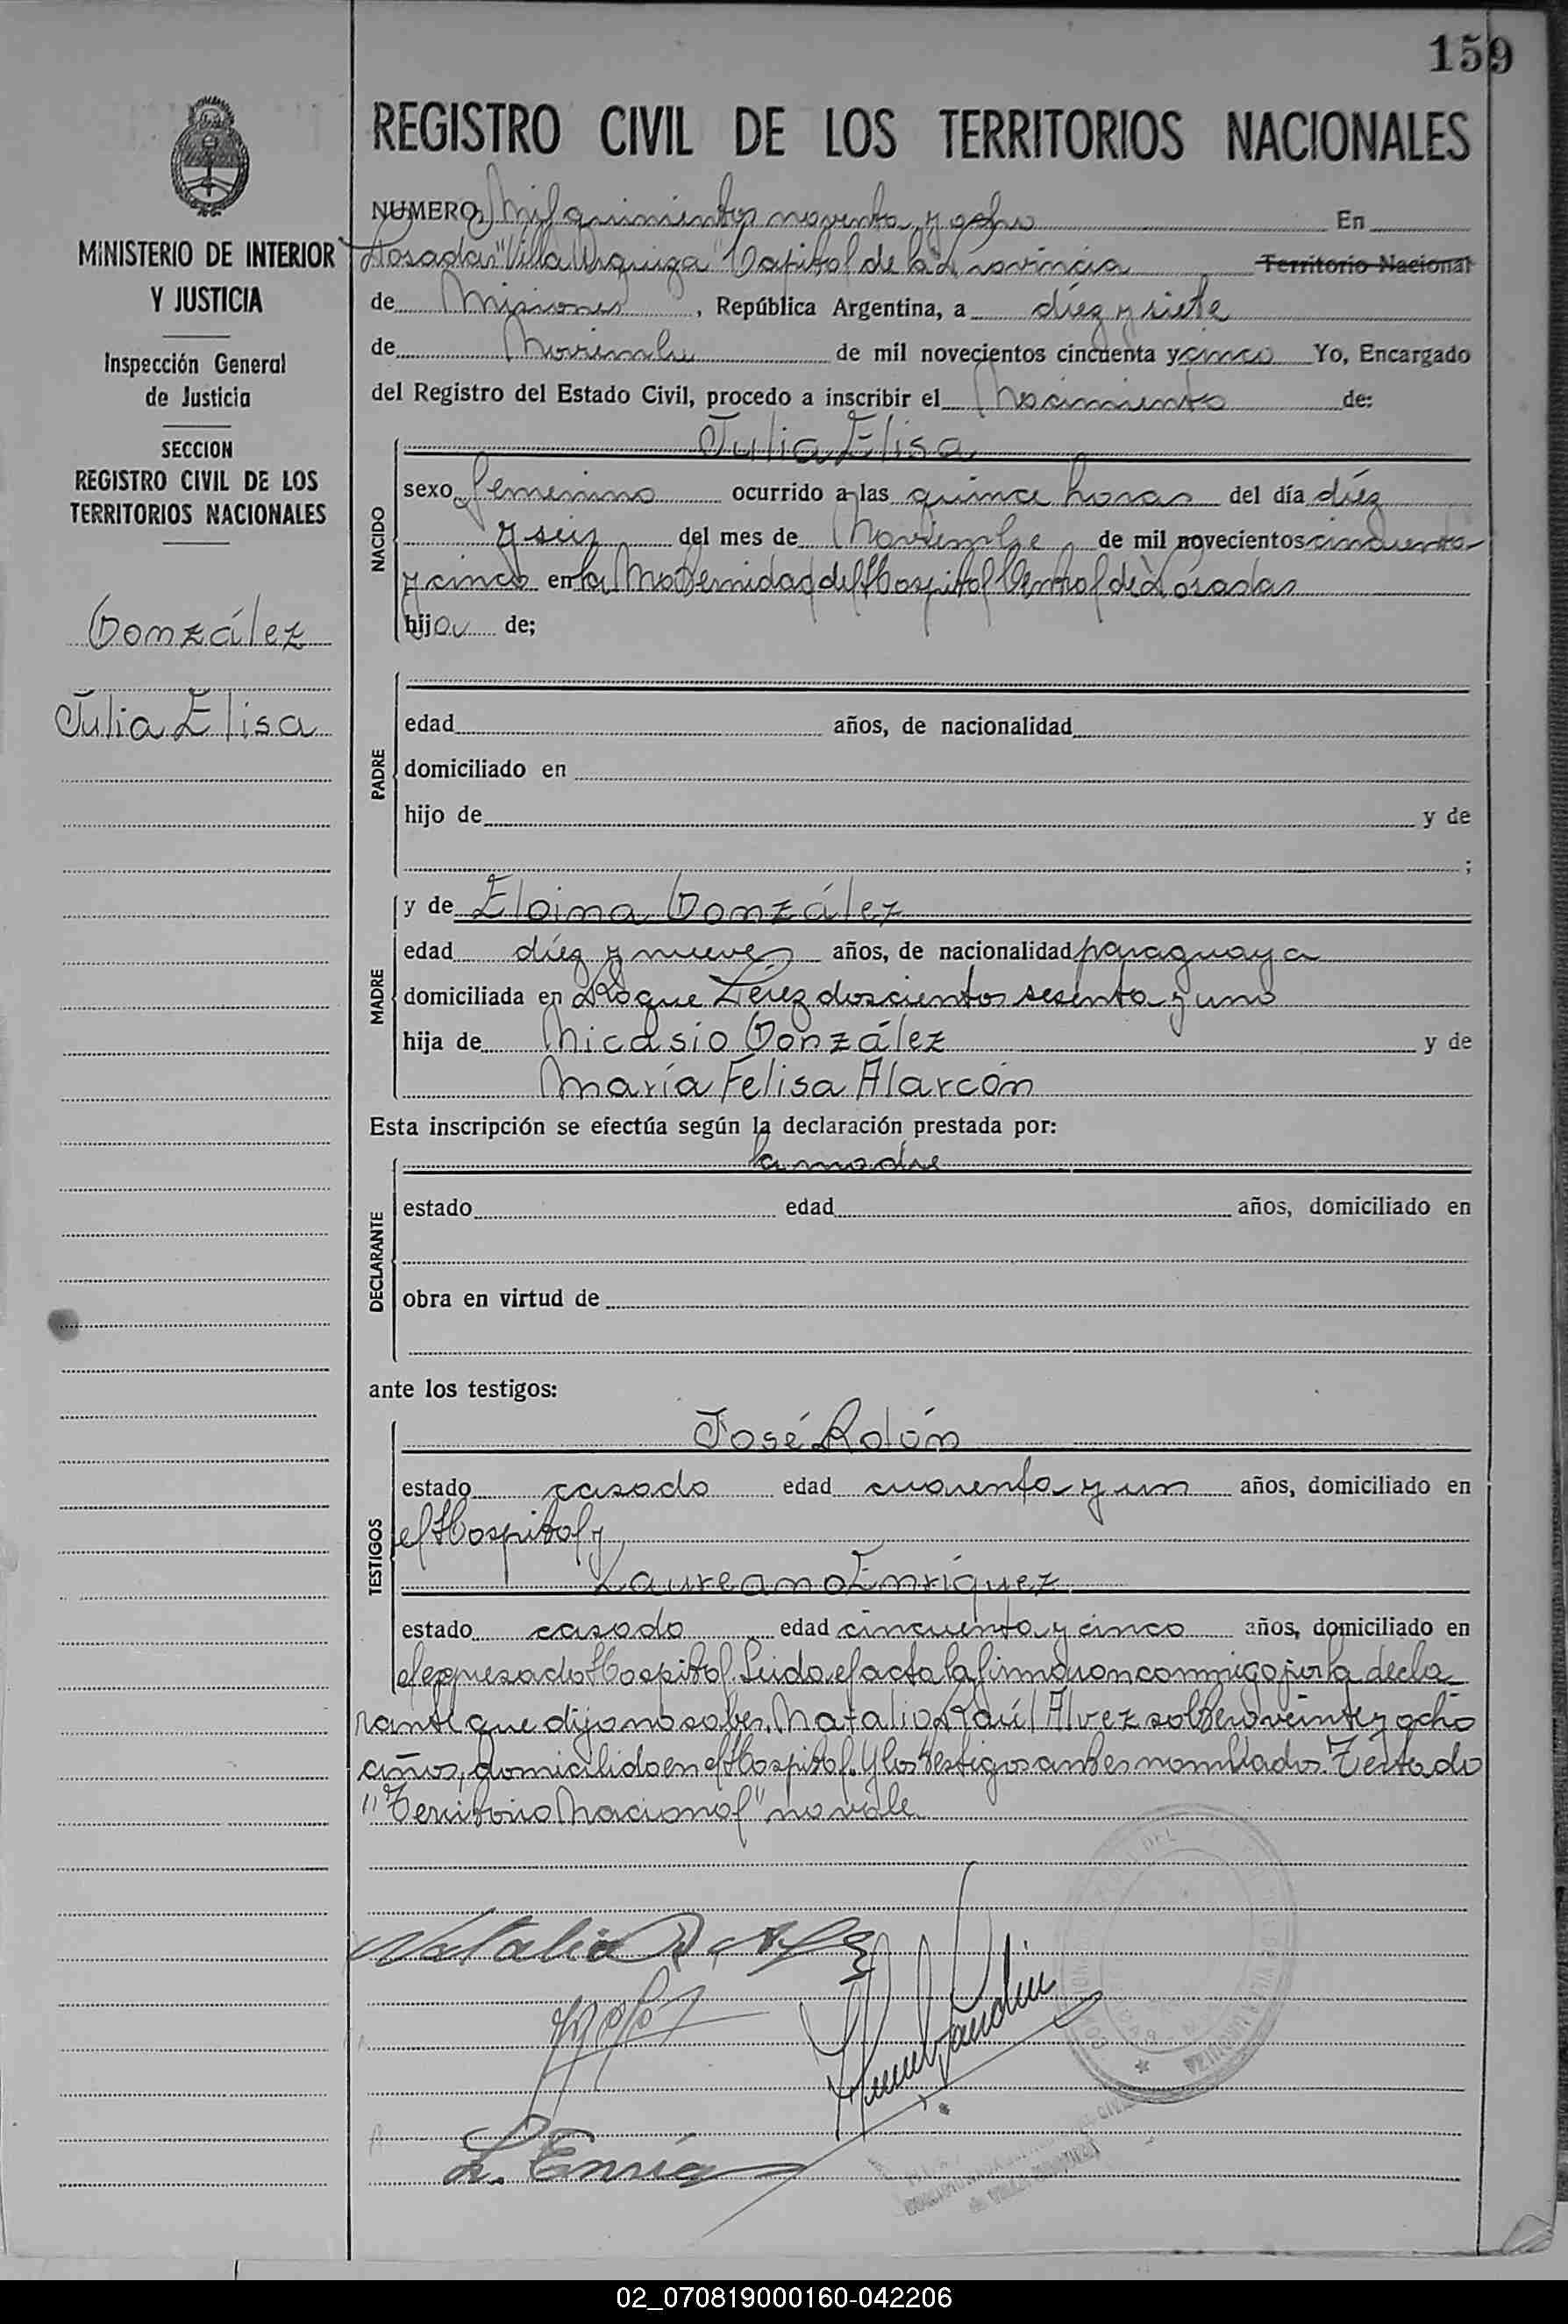 159
REGISTRO CIVIL DE LOS TERRITORIOS NACIONALES
MINISTERIO DE INTERIOR
Y JUSTICIA
Inspección General
de Justicia
SECCION
REGISTRO CIVIL DE LOS
TERRITORIOS NACIONALES
González
Julia Elisa
NUMERO Mil quinientos noventa y ocho En
Posadas "Villa Urquiza" Capital de la Provincia Territorio Nacional
de Misiones, República Argentina, a diez y siete
de Noviembre de mil novecientos cincuenta y cinco Yo, Encargado
del Registro del Estado Civil, procedo a inscribir el Nacimiento de:
NACIDO
Julia Elisa
sexo femenino ocurrido a las quince horas del día diéz
y seis del mes de Noviembre de mil novecientos cincuenta
y cinco en la Maternidad del Hospital Central de Posadas
hija de;
PADRE
edad años, de nacionalidad
domiciliado en
hijo de y de
;
MADRE
y de Eloina González
edad diéz y nueve años, de nacionalidad paraguaya
domiciliada en Roque Pérez doscientos sesenta y uno
hija de Nicasio González y de
María Felisa Alarcón
Esta inscripción se efectúa según la declaración prestada por:
DECLARANTE
la madre
estado edad años, domiciliado en
obra en virtud de
ante los testigos:
TESTIGOS
José Rolón
estado casado edad cuarenta y un años, domiciliado en
el Hospital y
Laureano Enríquez
estado casado edad cincuenta y cinco años, domiciliado en
el expresado Hospital. Leida el acta la firmaron conmigo por la decla
rante que dijo no saber, Natalio Raúl Alvez soltero veinte y ocho
años, domicilido en el Hospital. Y los testigos antes nombrados. Testado
"Territorio Nacional" no vale.
Natalio R. Alvez
L. Enríq
02_070819000160-042206